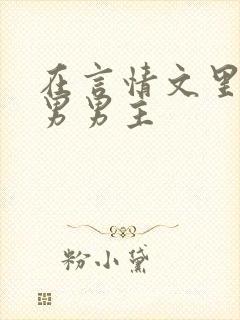 在言情文里
男男主
粉小黛